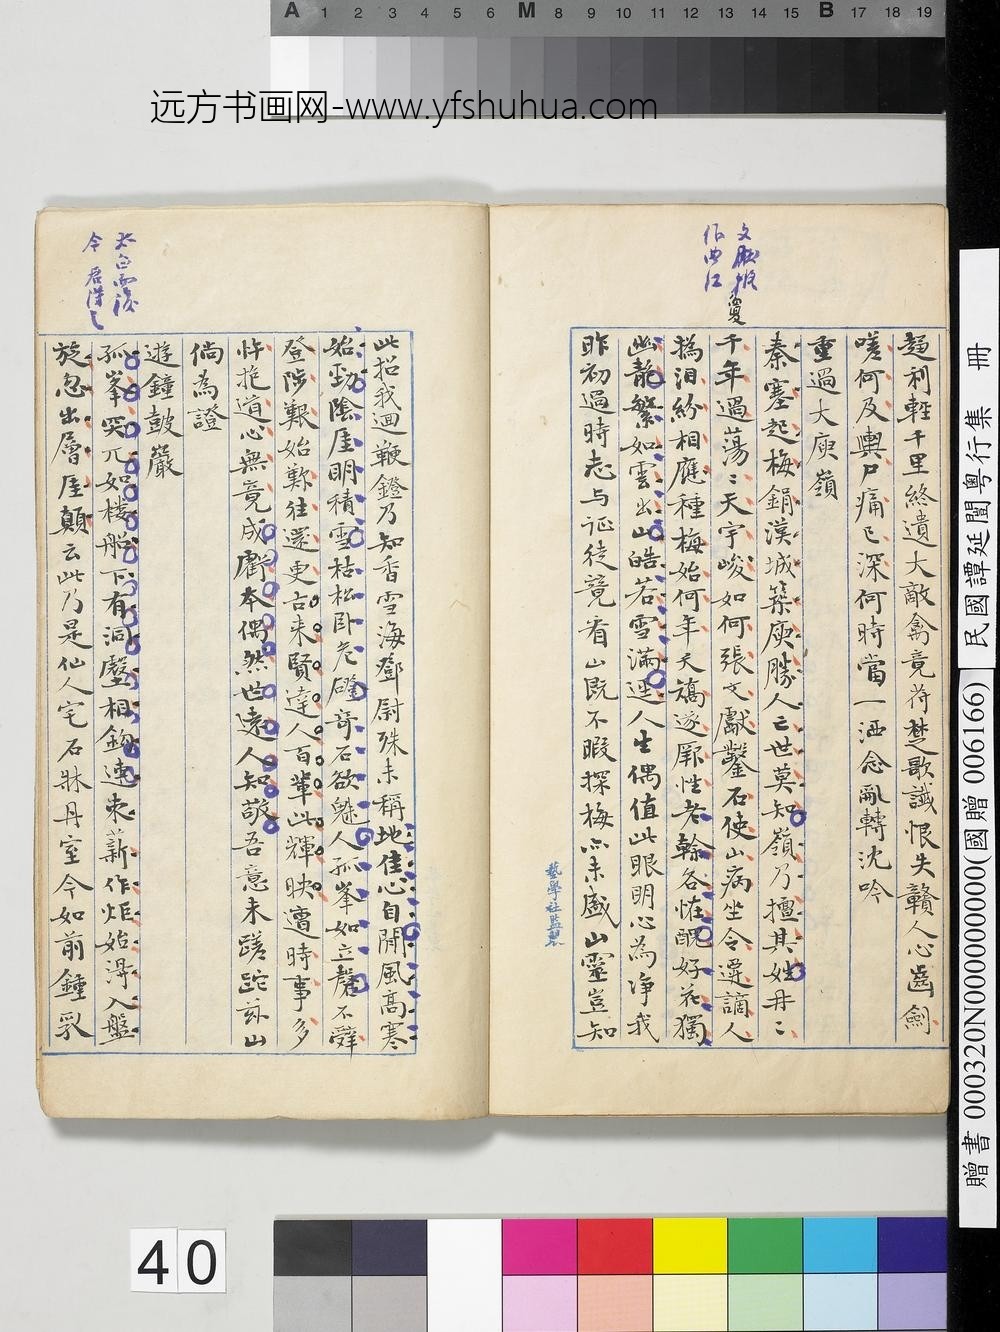 A 1 2 3 4 5 6 M 8 9 10 11 12 13 14 15 B 17 18 19
远方书画网-www.yfshuhua.com
文獻擬
作曲江
趨利輕千里終遺大敵禽竟符楚歌讖恨失贛人心齒劍
嗟何及輿尸痛已深何時當一洒念亂轉沈吟
重過大庾嶺
秦塞起梅鋗漢城築庾勝人亡世莫知嶺乃擅其姓丹〻
千年過蕩〻天宇峻如何張文獻鑿石使山病坐令遷謫人
搗淚紛相應種梅始何年天矯遂厥性老幹各恠醜好花獨
幽靚繁如雲出山皓若雪滿逕人生偶值此眼明心為淨我
昨初過時志与証徒競看山既不暇探梅亦未盛山靈豈知
藝學社監製
此招我迴鞭鐙乃知香雪海鄧尉殊未稱地佳心自閒風高寒
始勁陰厓明積雪枯松臥危磴奇石欲魅人孤峯如立磬不辭
登陟艱始歎往還更古來賢達人百輩此輝映遭時事多
忤抱道心無竟成虧本偶然世遠人知敬吾意未蹉跎茲山
倘為證
遊鐘鼓巖
孤峯突兀如楼船下有洞壑相鈎連束薪作炬始淂入盤
旋忽出層厓顛云此乃是仙人宅石牀丹室今如前鍾乳
太白而後
今君得之
民國譚延闓粵行集 冊
贈書 000320N000000000(國贈 006166)
40